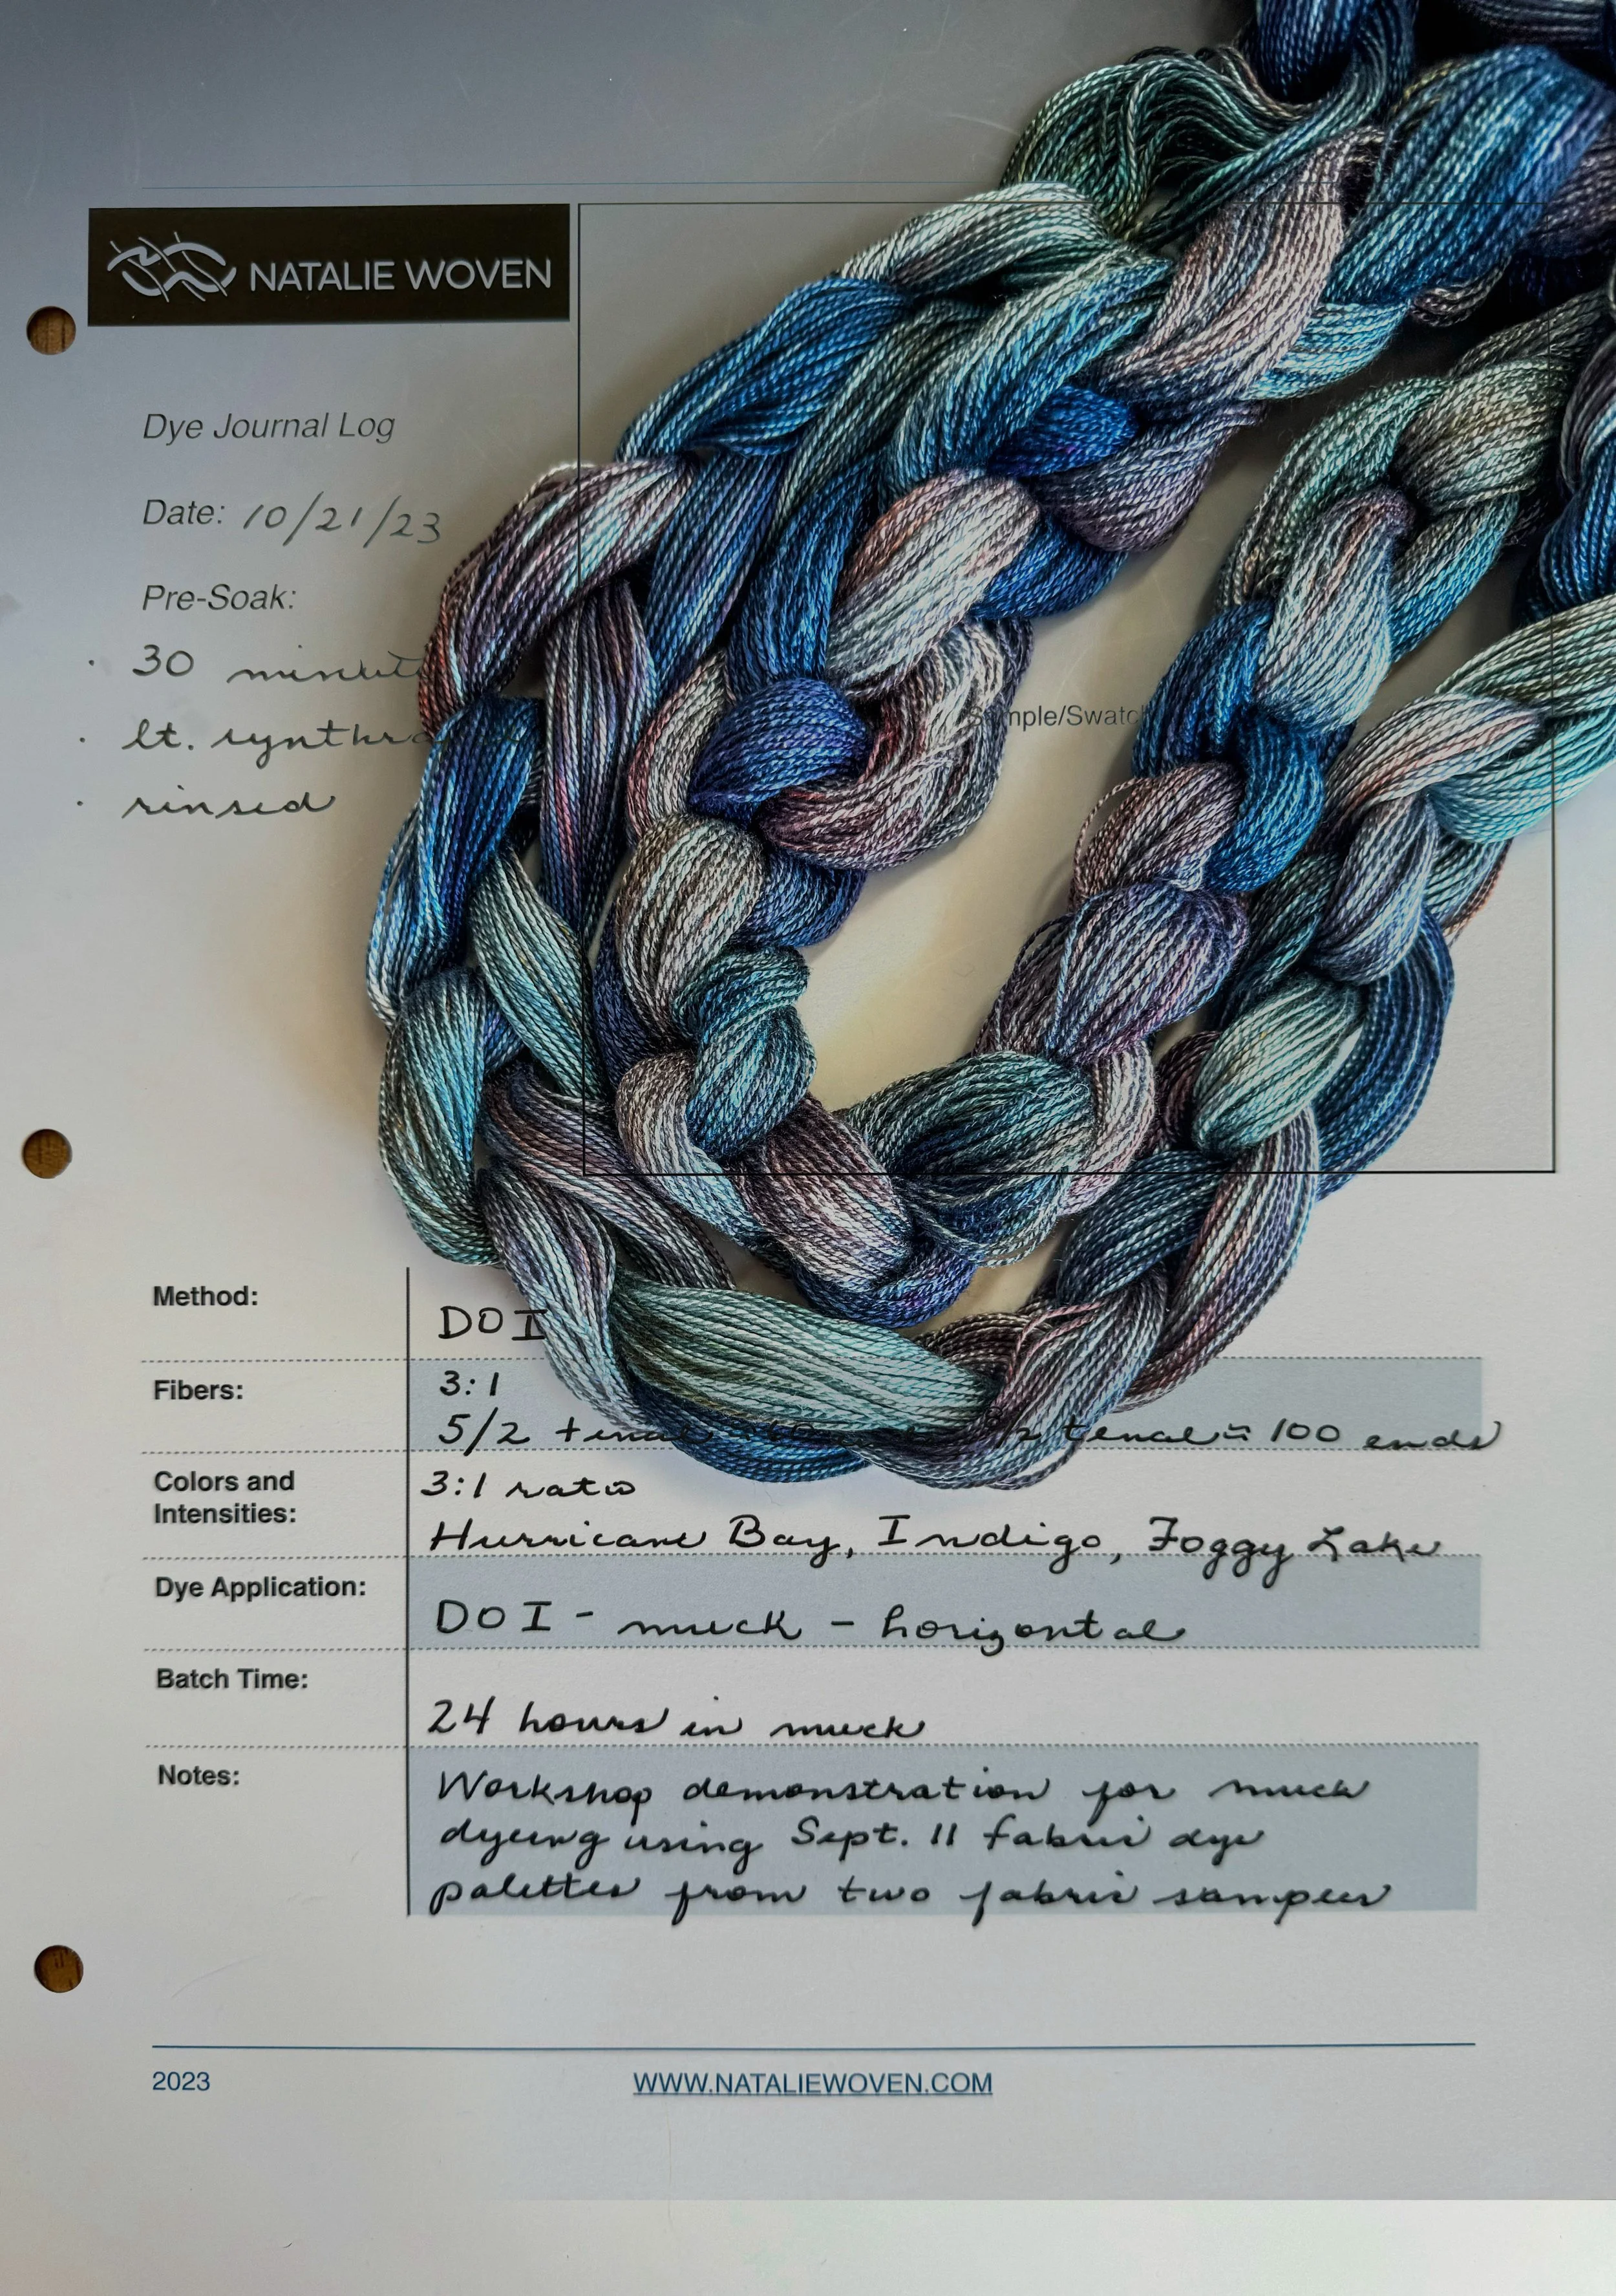 NATALIE WOVEN
Dye Journal Log
Date: 10/21/23
Pre-Soak:
· 30 minut
· lt. synthra
· rinsed
Sample/Swatch
Method:
DOI
Fibers:
3:1
5/2 tencel 2 tencel = 100 ends
Colors and
Intensities:
3:1 ratio
Hurricane Bay, Indigo, Foggy Lake
Dye Application:
DOI - muck - horizontal
Batch Time:
24 hours in muck
Notes:
Workshop demonstration for muck
dyeing using Sept. 11 fabric dye
palettes from two fabric samples
2023
WWW.NATALIEWOVEN.COM